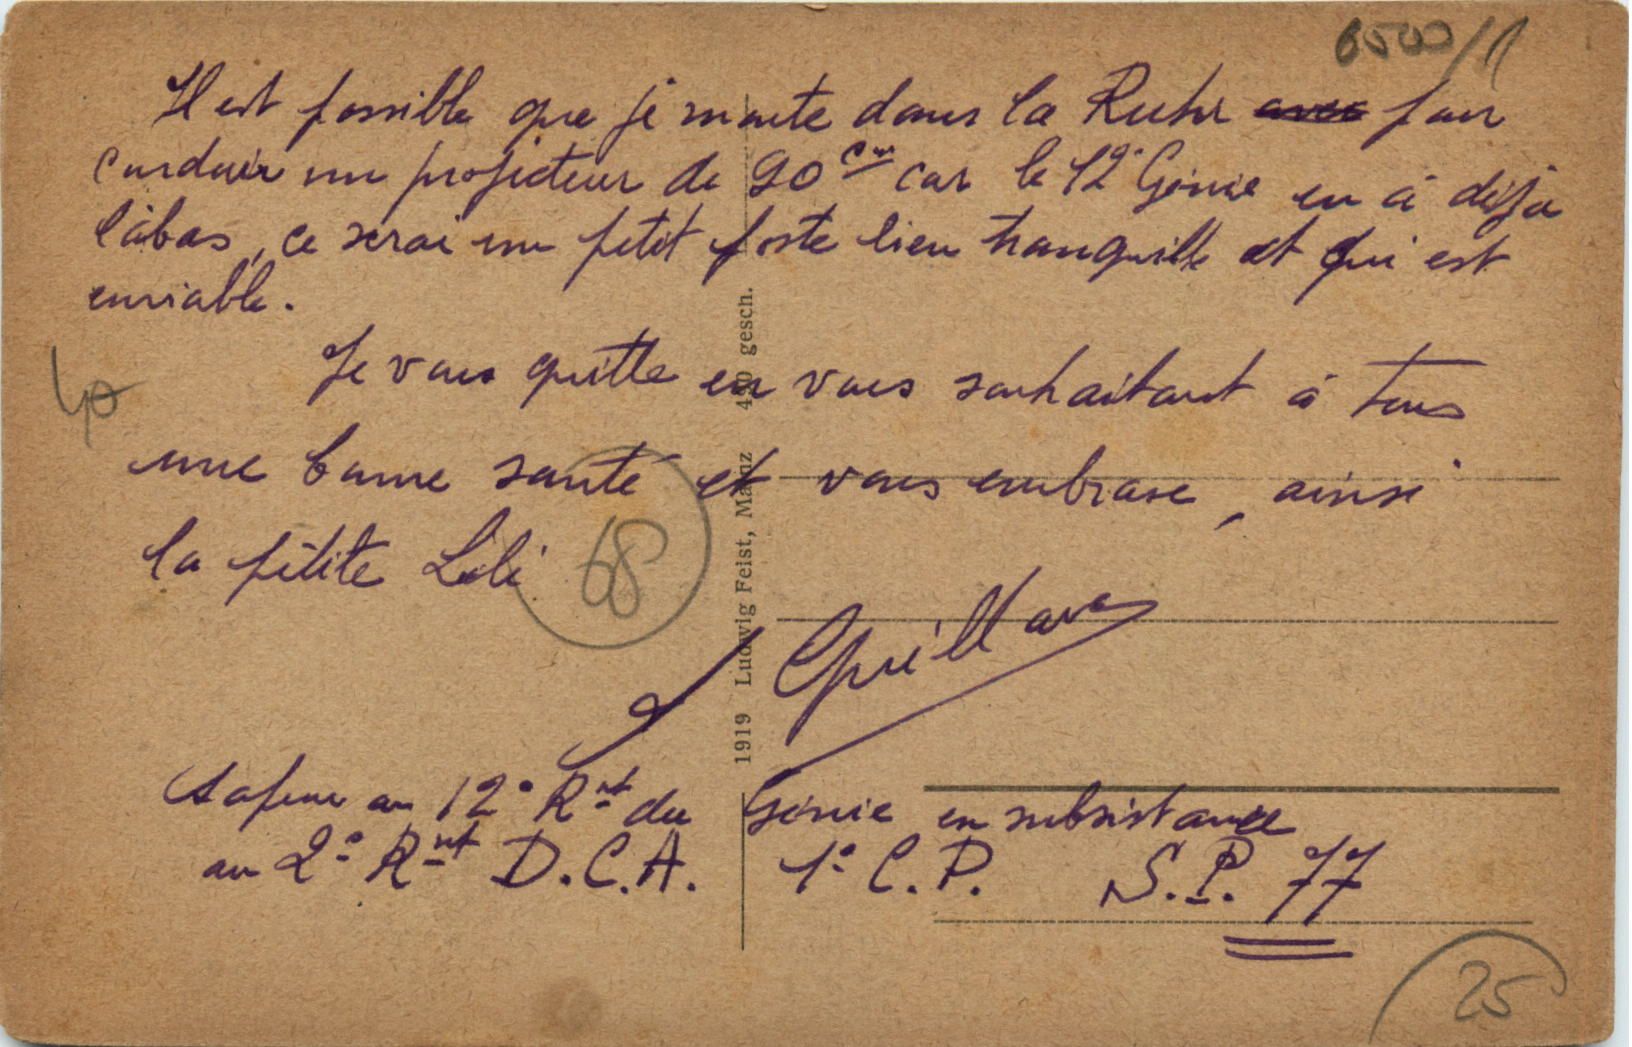 6500/1
Il est possible que je monte dans la Ruhr avec pour
conduire un projecteur de 90 cm car le 12e Génie en à déjà
làbas, ce serai un petit poste bien tranquille et qui est
enviable.
Je vous quitte en vous souhaitant à tous
une bonne santé et vous embrasse, ainsi
la petite Loli
68
Sapeur au 12e Rnt du Génie en subsistance
au 2e Rnt D.C.A. 1e C.P. S.P. 77
25
1919 Ludwig Feist, Mainz 490 gesch.